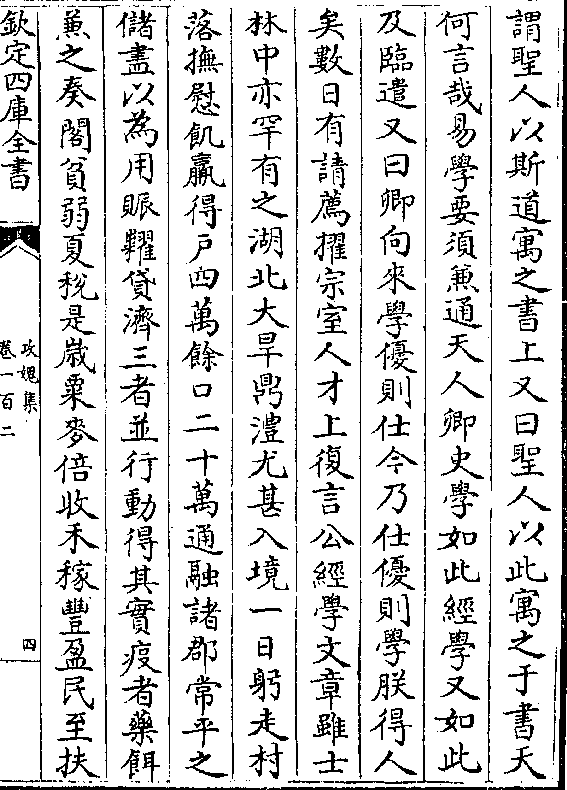 謂聖人以斯道寓之書上又曰聖人以此寓之于書天
何言哉易學要須兼通天人卿史學如此經學又如此
及臨遣又曰卿向來學優則仕今乃仕優則學朕得人
矣數日有請薦擢宗室人才上復言公經學文章雖士
林中亦罕有之湖北大旱鼎澧尤甚入境一日躬走村
落撫慰飢羸得戸四萬餘口二十萬通融諸郡常平之
儲盡以為用賑糶貸濟三者並行動得其實疫者藥餌
兼之奏閣貧弱夏稅是嵗粟麥倍收禾稼豐盈民至扶
欽定四庫全書
攻媿集
卷一百二
四